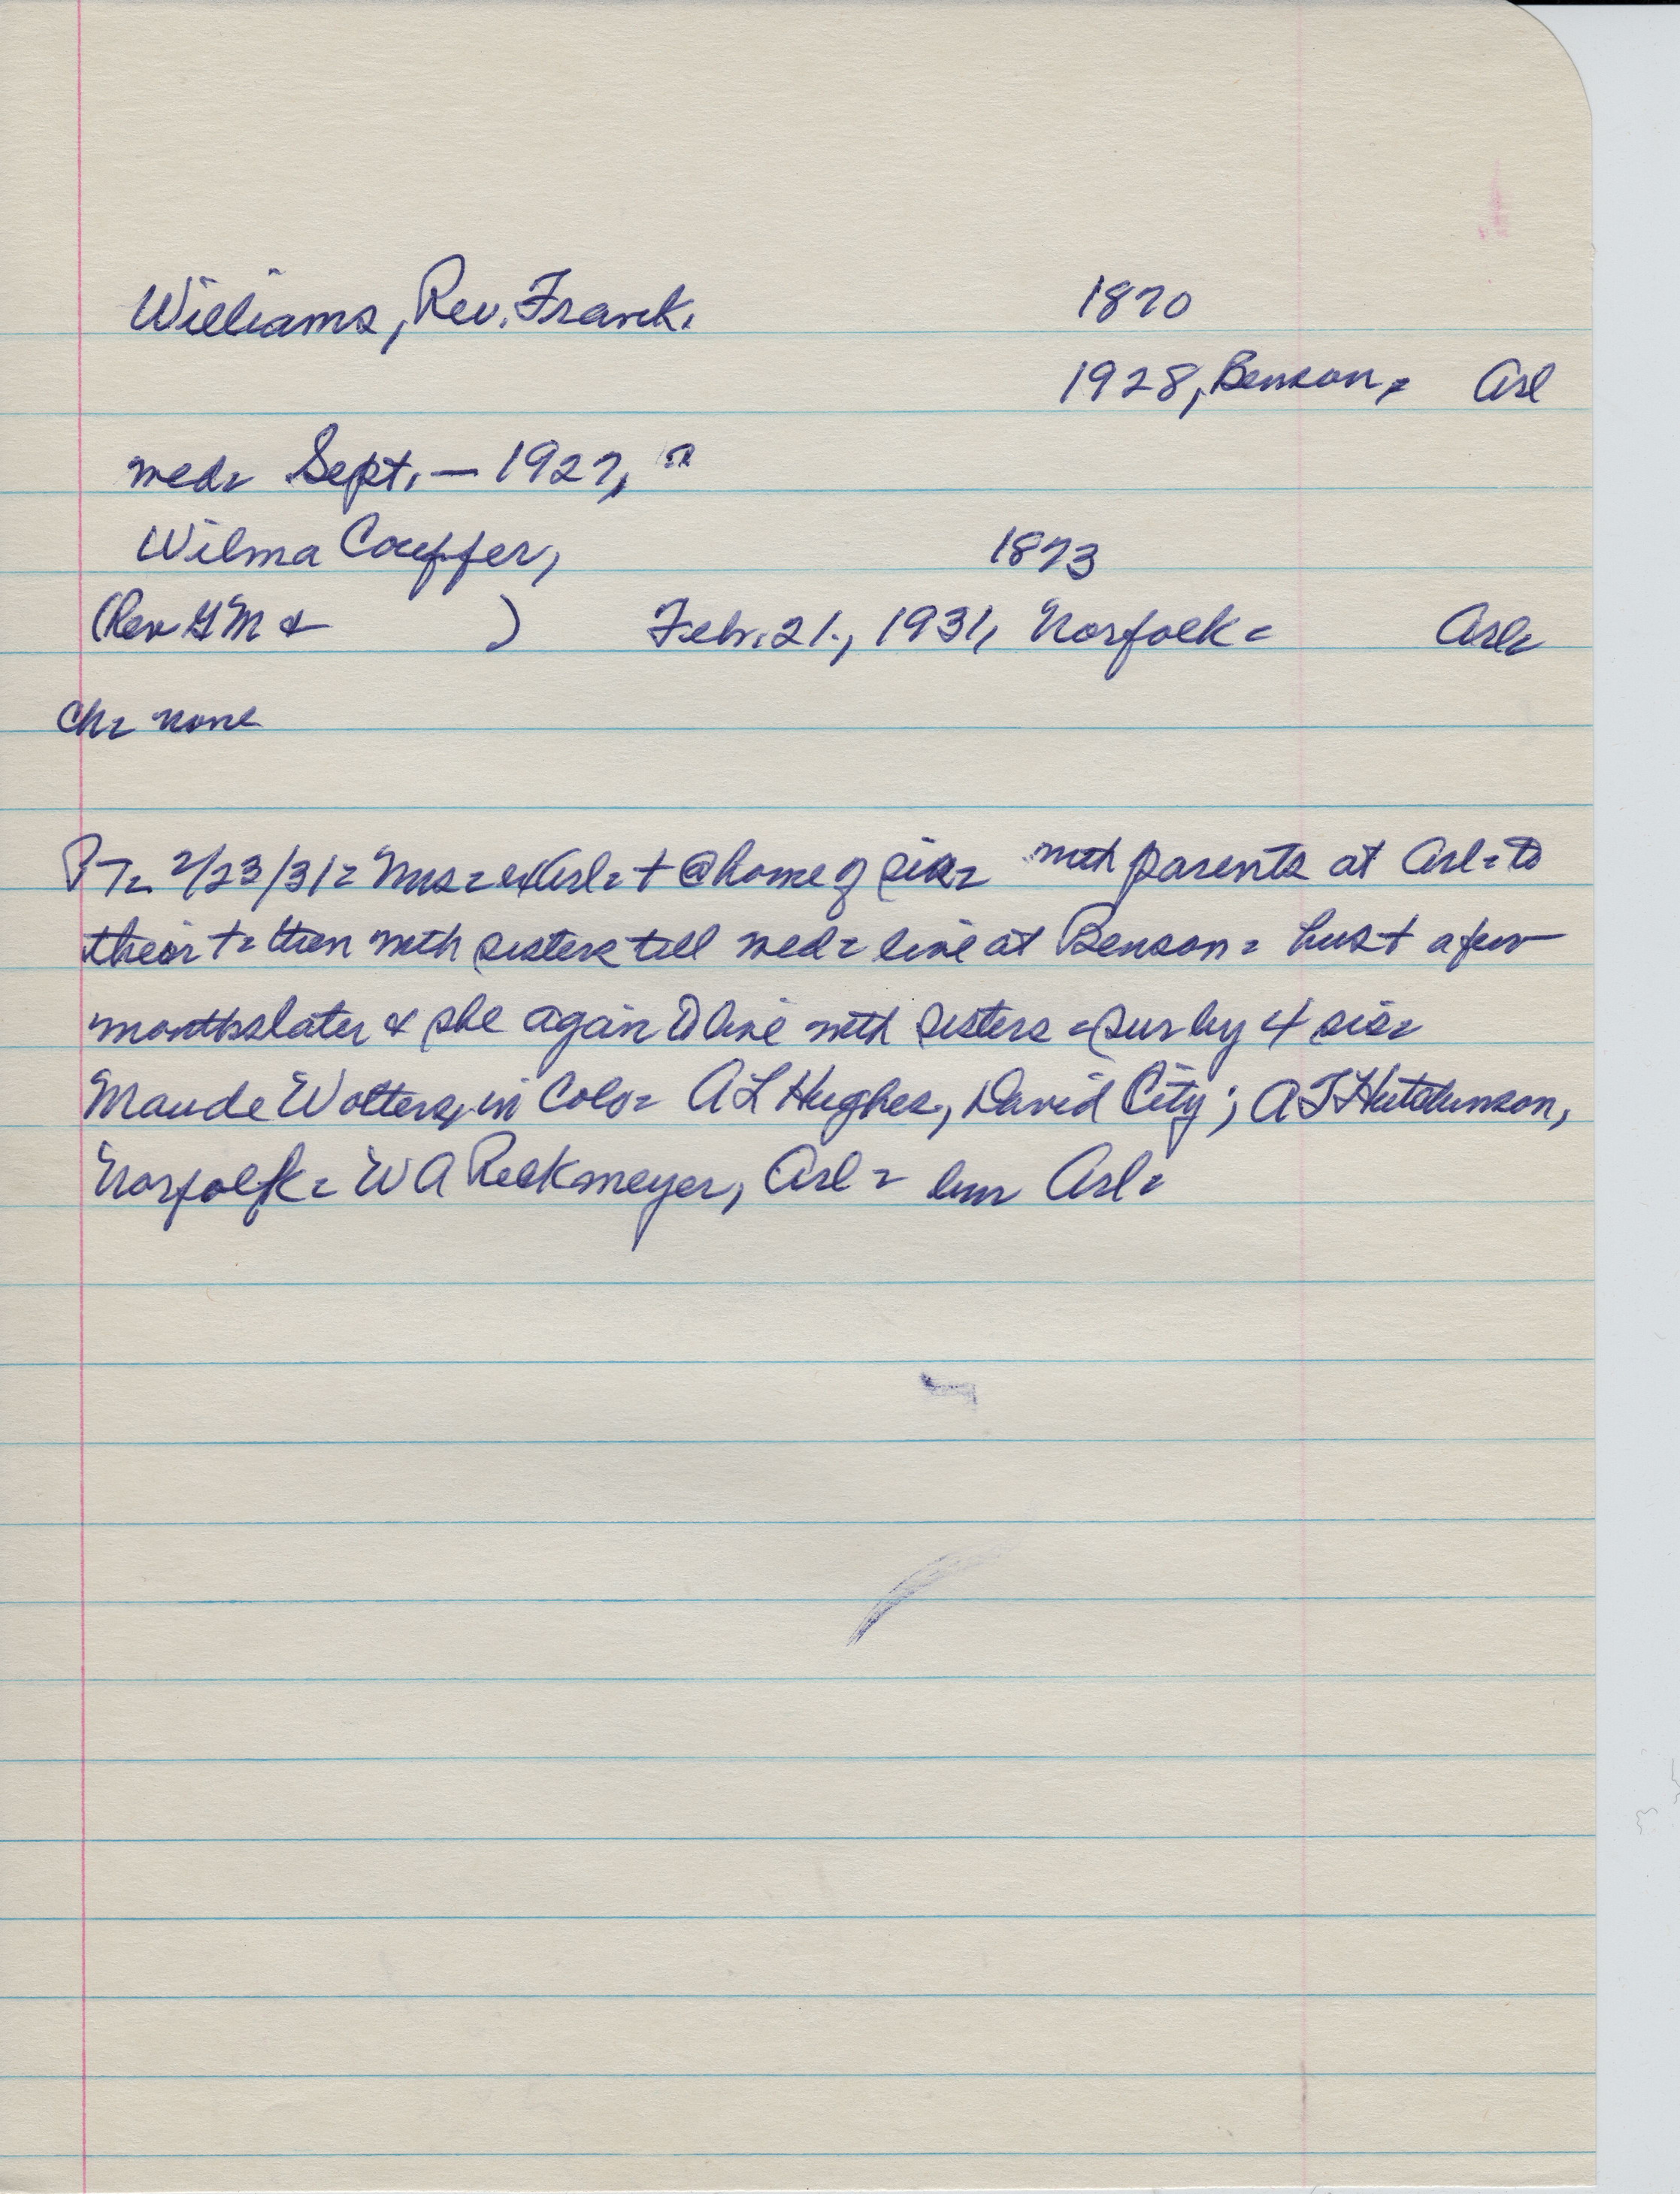 Williams, Rev. Frank. 1870
1928, Benson, = Arl
wed= Sept. — 1927, ?
Wilma Couffer, 1873
(Rev GM & ) Feb. 21., 1931, Norfolk = Arl=
Ch= none
PT= 2/23/31= Mrs= ex Arl= + @ home of sis= with parents at Arl= to
their += then with sisters till wed= live at Benson = hus + a few
months later & she again to live with sisters = sur by 4 sis=
Maude Wolters, in Colo= A L Hughes, David City; A J Hutchinson,
Norfolk = W A Reckmeyer, Arl = bur Arl=